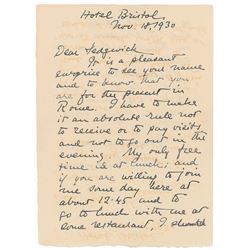 Hotel Bristol,
Nov. 18, 1930
Dear Sedgwick
It is a pleasant
surprise to see your name
and to know that you
are for the present in
Rome. I have to make
it an absolute rule not
to receive or to pay visits
and not to go out in the
evening. My only free
time is at lunch, and
if you are willing to join
me some day here at
about 12.45 and to
go to lunch with me at
some restaurant, I should